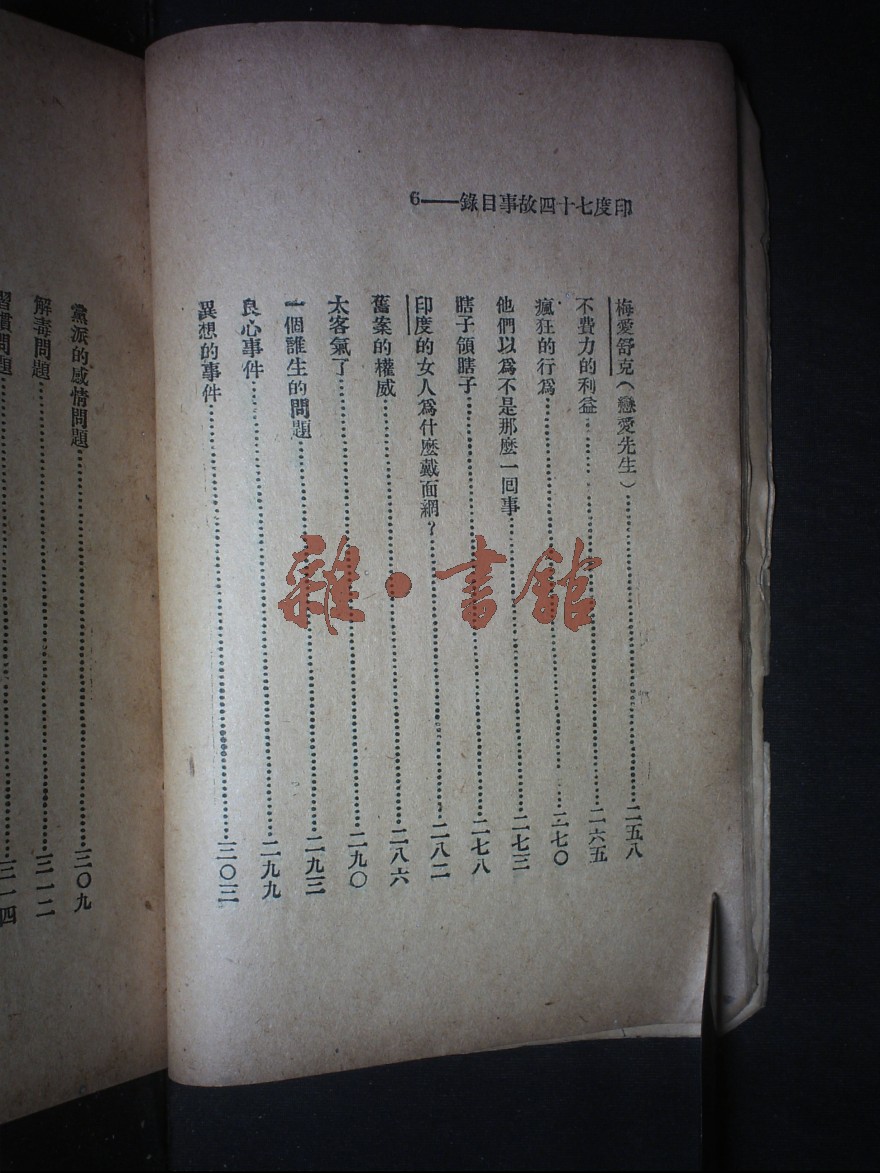 印度七十四故事目錄——6
梅愛舒克(戀愛先生)……二五八
不費力的利益……二六五
瘋狂的行為……二七〇
他們以為不是那麼一回事……二七三
瞎子領瞎子……二七八
印度的女人爲什麼戴面網?……二八二
舊案的權威……二八六
太客氣了……二九〇
一個誰生的問題……二九三
良心事件……二九九
異想的事件……三〇三
黨派的感情問題……三〇九
解毒問題……三一二
習慣問題……三一四
雜·書館